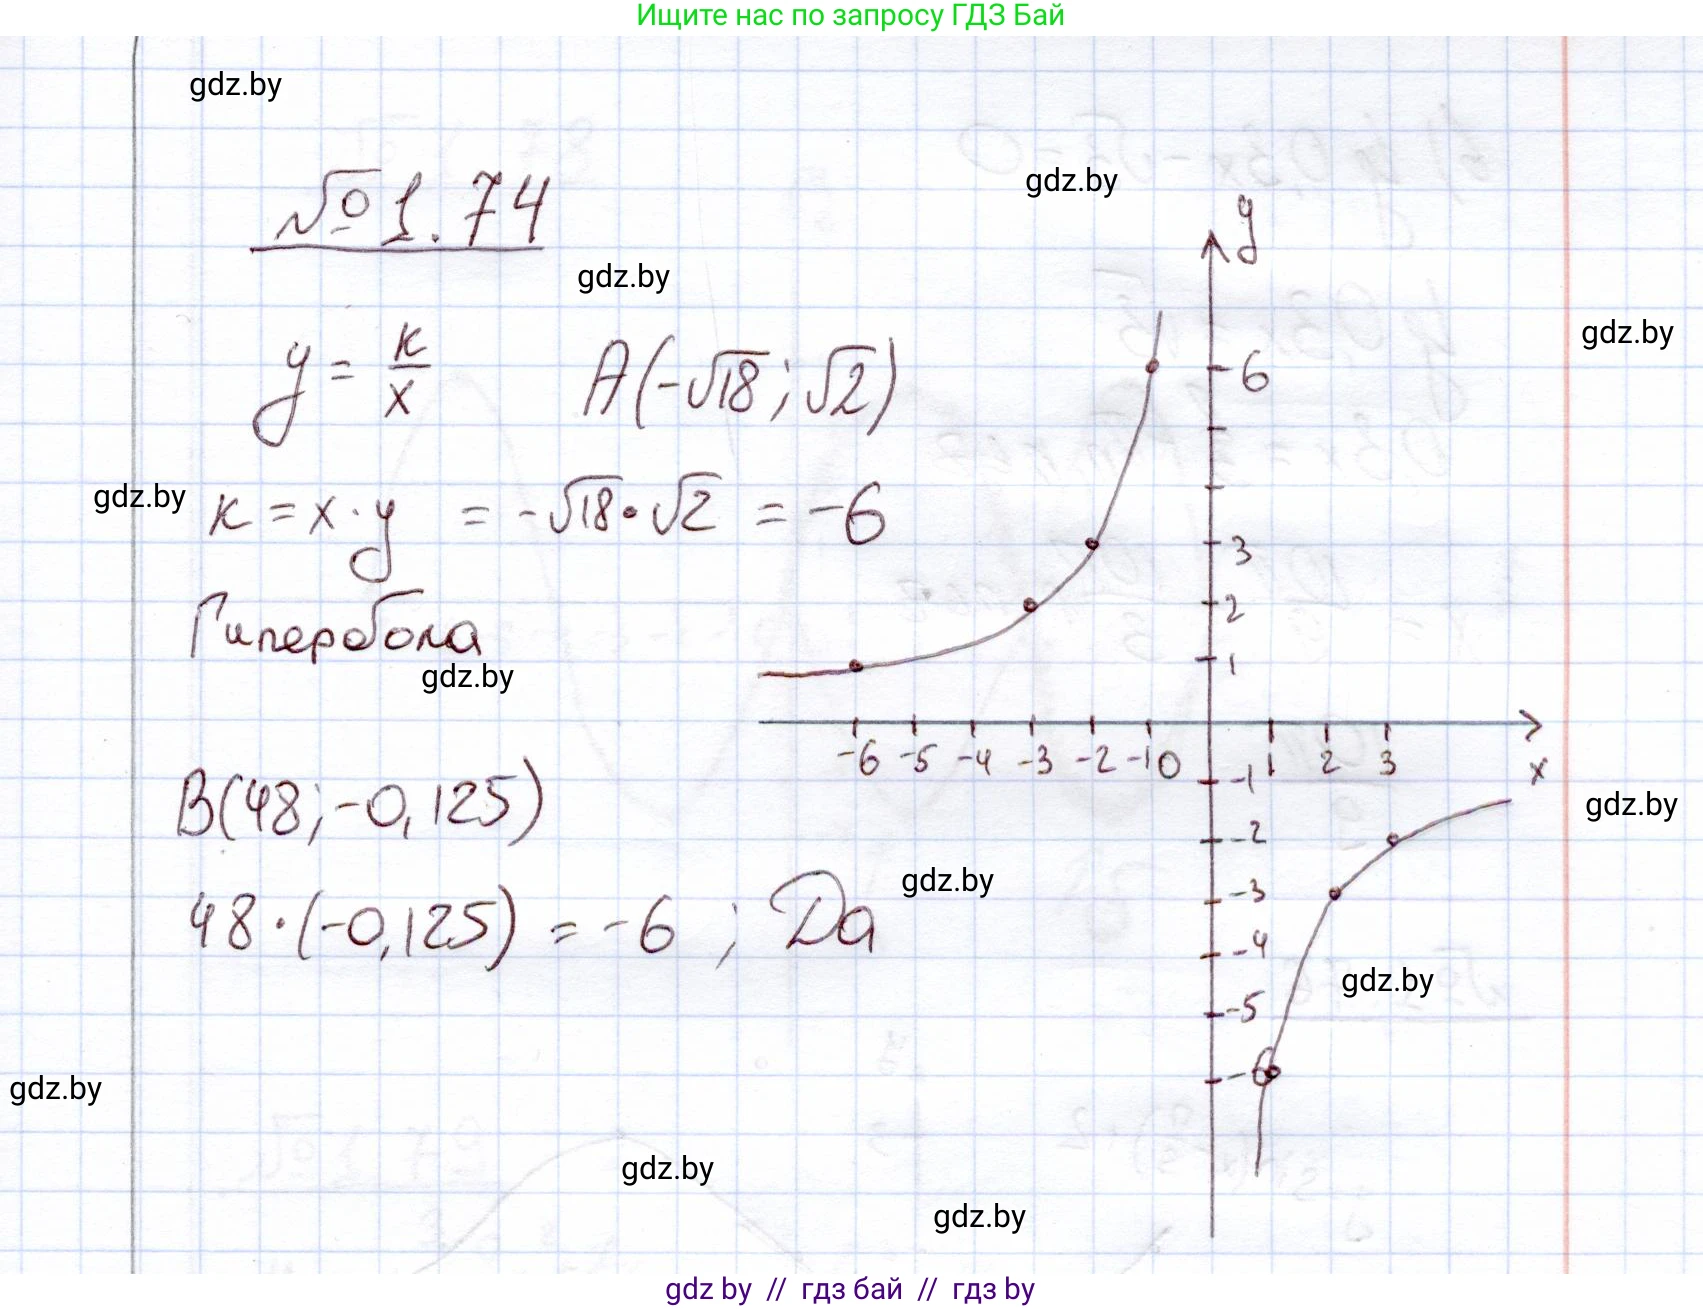 Ищите нас по запросу ГДЗ Бай
gdz.by
№ 1.74
gdz.by
gdz.by
y = к/х
A(-√18; √2)
gdz.by
gdz.by
к = х · у = -√18 · √2 = -6
Гипербола
gdz.by
B(48; -0,125)
48 · (-0,125) = -6 ; Да
gdz.by
y
6
3
2
1
-6 -5 -4 -3 -2 -1 0 1 2 3
x
-1
-2
-3
-4
-5
-6
gdz.by
gdz.by
gdz.by
gdz.by
gdz.by
gdz by // гдз бай // гдз by